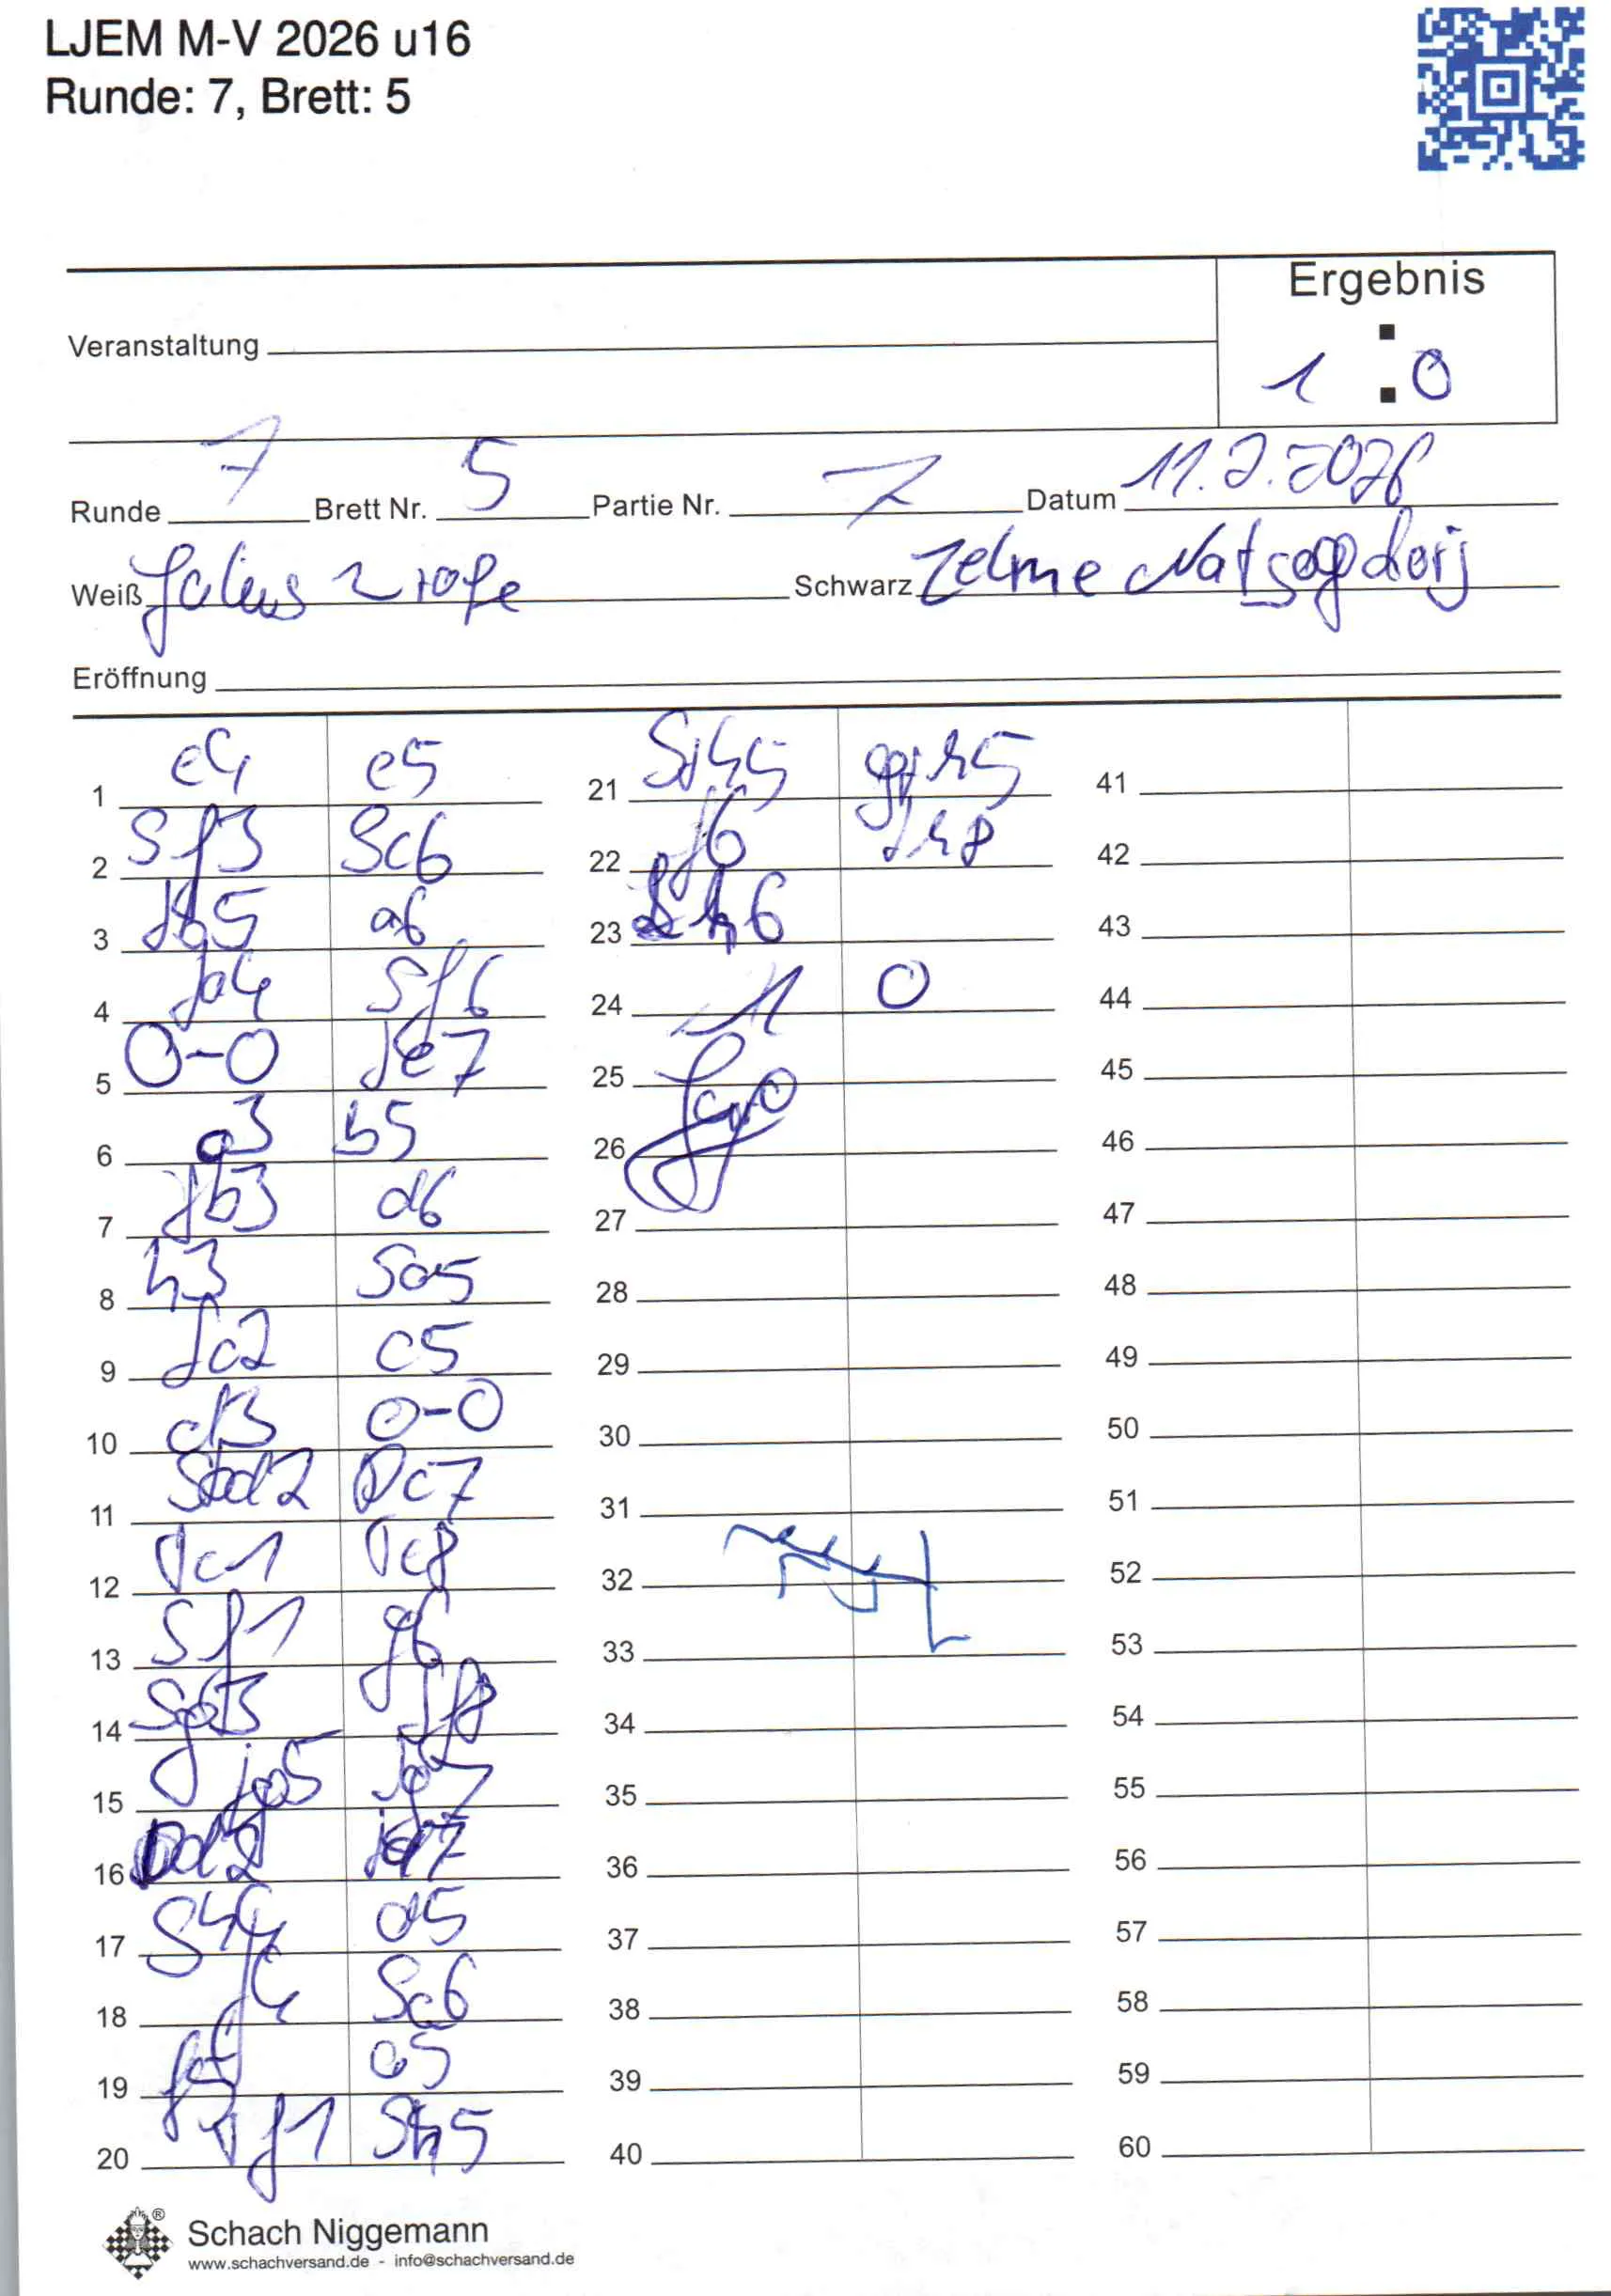 LJEM M-V 2026 u16
Runde: 7, Brett: 5
Ergebnis
1 : 0
Veranstaltung
Runde 7 Brett Nr. 5 Partie Nr. 7 Datum 11.2.2026
Weiß Schwarz Zelme Natsagdorij
Eröffnung
1 e4 e5
2 Sf3 Sc6
3 Lb5 a6
4 La4 Sf6
5 0-0 Le7
6 a3 b5
7 Lb3 d6
8 h3 Sa5
9 La2 c5
10 d3 0-0
11 Sbd2 Dc7
12 Te1 Te8
13 Sf1 g6
14 Sg3 Lf8
15 Lg5 Lg7
16 Dd2 Ld7
17 Sh4 d5
18 f4 Sc6
19 f5 a5
20 Tf1 Sh5
21 Sxh5 gxh5
22 f6 Lh8
23 Lh6
24 1 0
25
26
27
28
29
30
31
32
33
34
35
36
37
38
39
40
41
42
43
44
45
46
47
48
49
50
51
52
53
54
55
56
57
58
59
60
Schach Niggemann
www.schachversand.de - info@schachversand.de